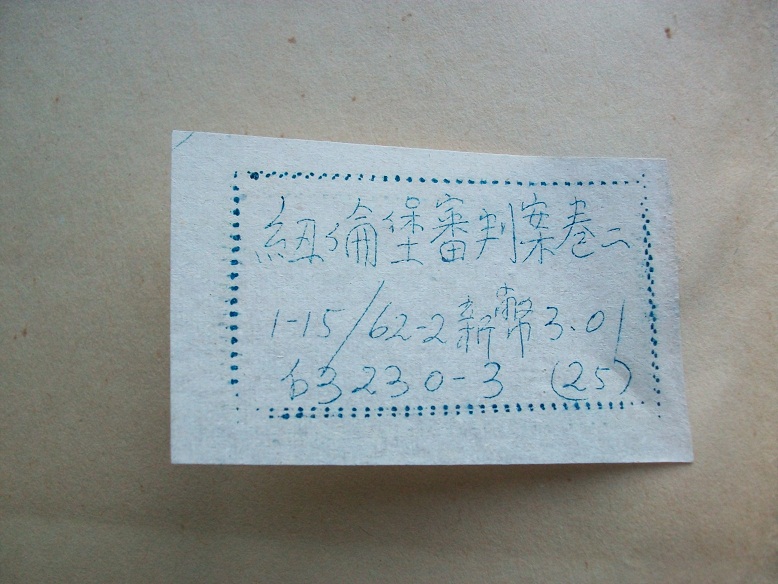 紐倫堡審判案卷二
1-15/62-2新幣3.01
63230-3 (25)